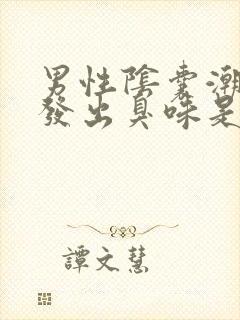 男性陰囊潮
發出臭味是
譚文慧